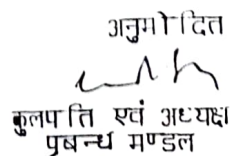 अनुमोदित
कुलपति एवं अध्यक्ष
प्रबन्ध मण्डल